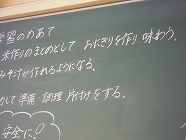 学習のめあて
米作りのまとめとして おにぎりを作り 味わう。
みそ汁が作れるようになる。
して 準備 調理 片付けをする。
安全に